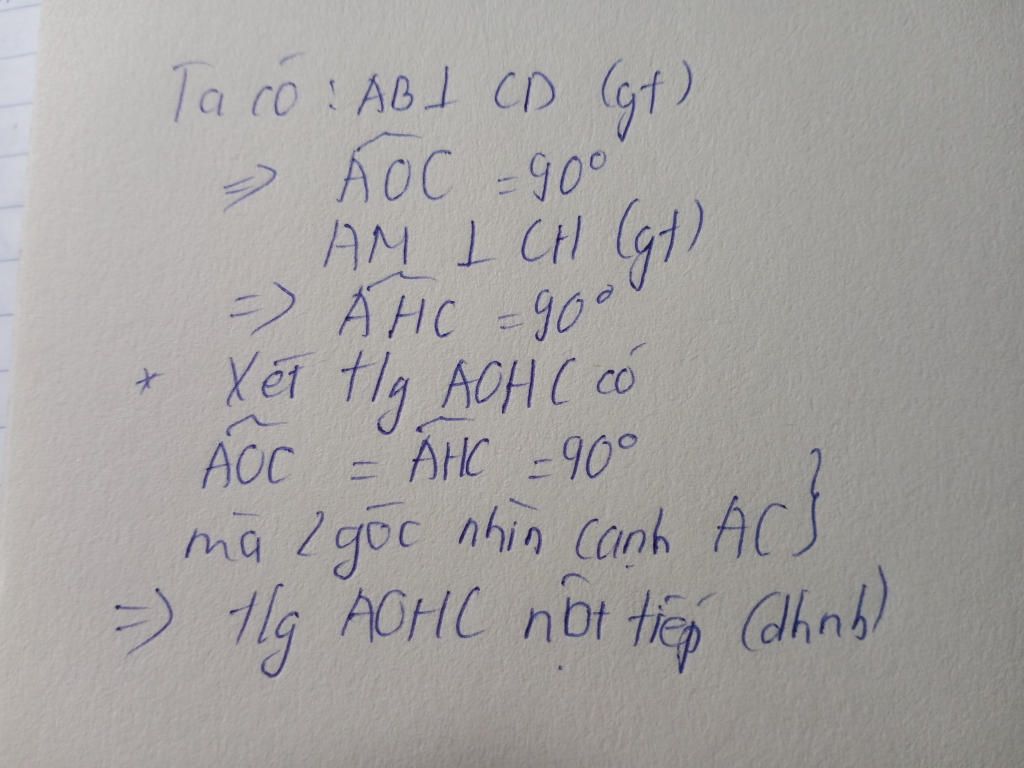 Ta có : AB ⊥ CD (gt)
=> \widehat{AOC} = 90°
AM ⊥ CH (gt)
=> \widehat{AHC} = 90°
* Xét t/g AOHC có
\widehat{AOC} = \widehat{AHC} = 90°
mà 2 góc nhìn cạnh AC }
=> t/g AOHC nột tiếp (dhnb)